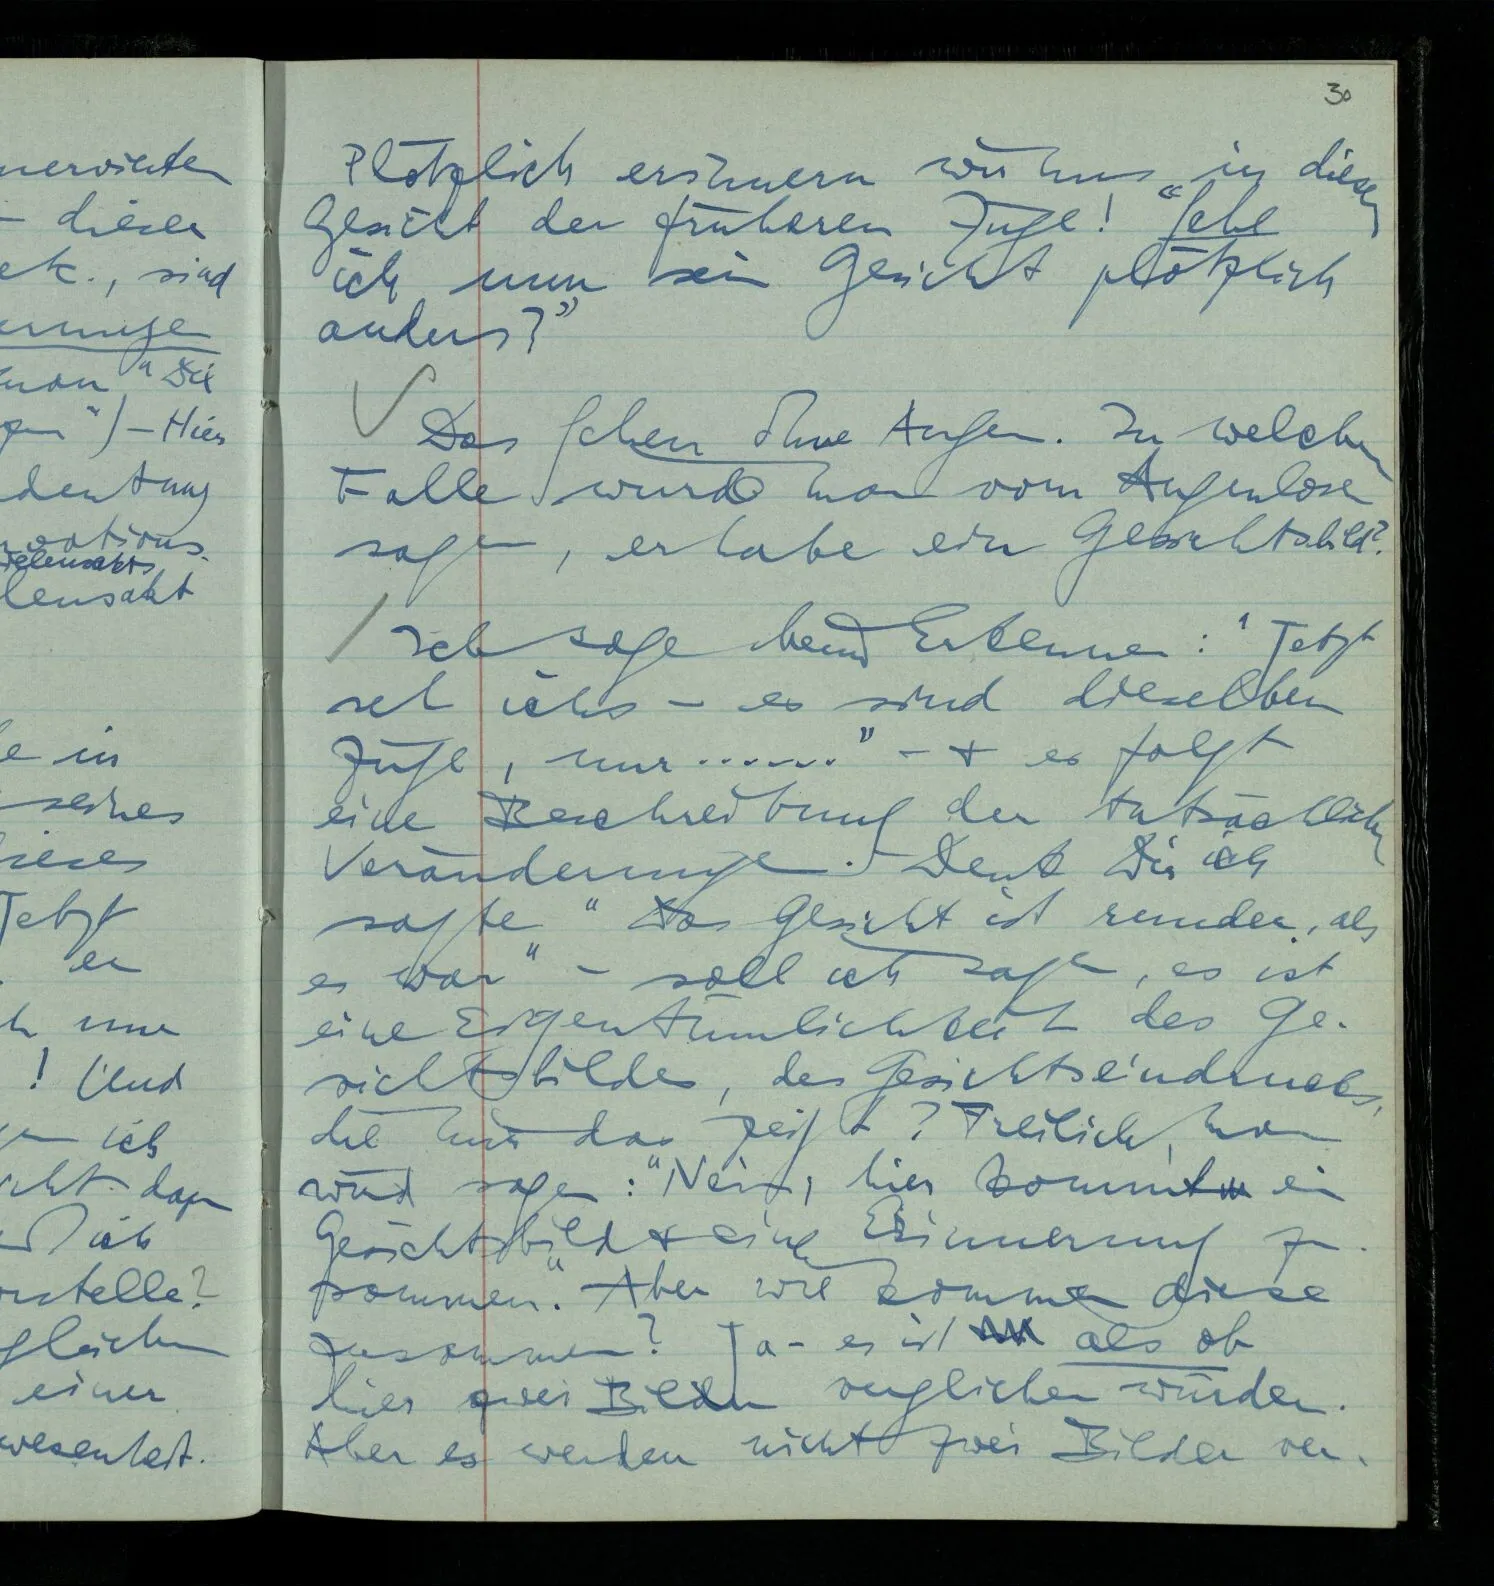 nervierten
– dieser
etc., sind
man "Die
") – Hier
lensakt
e in
seines
dieses
Jetzt
er
nun
! Und
ich
ich
rstelle?
gleichen
einer
wesenheit.
30
Plötzlich erinnern wir uns in diesem
Gesicht der früheren Züge! "Sehe
ich nun sein Gesicht plötzlich
anders?"
Das Sehen ohne Augen. In welchem
Falle würde man vom Augenlosen
sagen, er habe ein Gesichtsbild?
Ich sage beim Erkennen: "Jetzt
seh ichs – es sind dieselben
Züge, nur ......" – + es folgt
eine Beschreibung der tatsächlichen
Veränderungen. – Denk Dir ich
sagte "Das Gesicht ist runder, als
es war" – soll ich sagen, es ist
eine Eigentümlichkeit des Ge-
sichtsbildes, des Gesichtseindrucks,
die mir das zeigt? Freilich, man
wird sagen: "Nein, hier kommt ein
Gesichtsbild + eine Erinnerung zu-
sammen". Aber wie kommen diese
zusammen? Ja – es ist als ob
hier zwei Bilder verglichen würden.
Aber es werden nicht zwei Bilder ver-